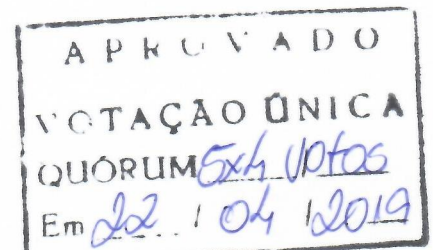 APROVADO
VOTAÇÃO ÚNICA
QUÓRUM 5x4 votos
Em 22 / 04 / 2019